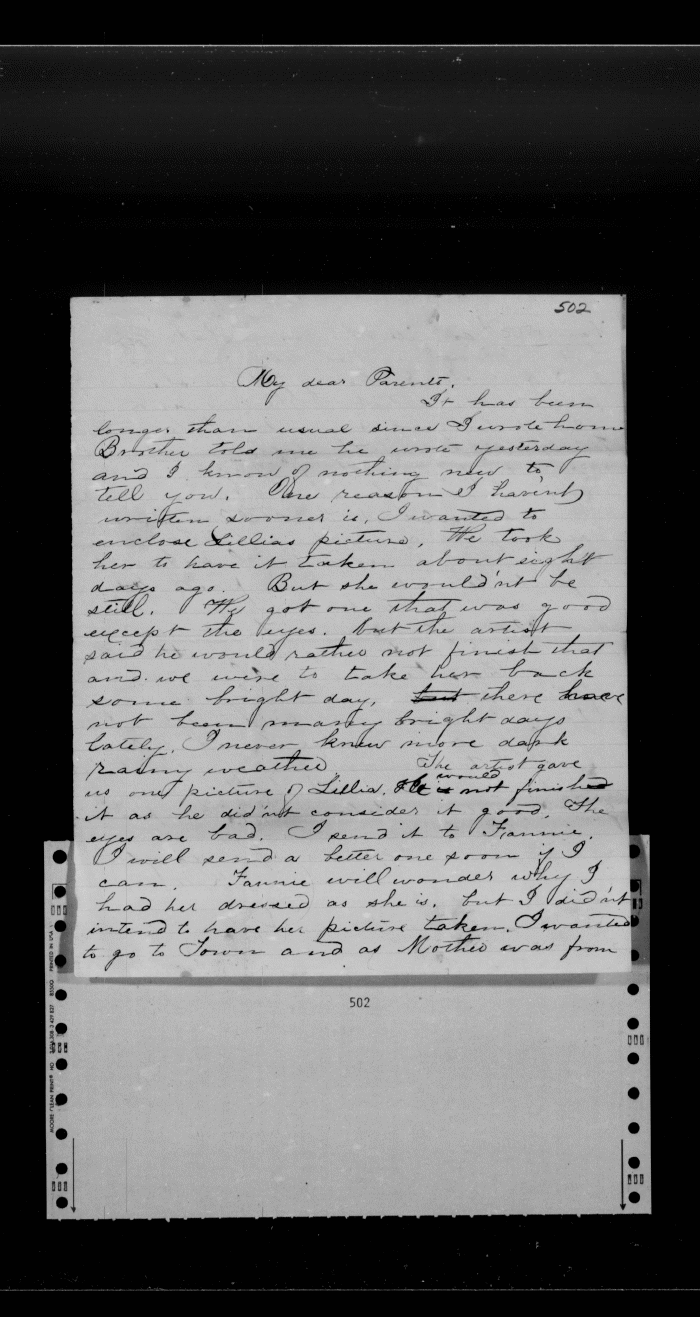 502
My dear Parents.
It has been
longer than usual since I wrote home
Brother told me he wrote yesterday
and I know of nothing new to
tell you. One reason I havent
written sooner is, I wanted to
enclose Lillias picture. We took
her to have it taken about eight
days ago. But she would'nt be
still. We got one that was good
except the eyes. but the artist
said he would rather not finish that
and we were to take her back
some bright day, but there have
not been many bright days
lately. I never knew more dark
rainy weather The artist gave
us one picture of Lillia. He is would not finished
it as he did'nt consider it good. The
eyes are bad. I send it to Fannie.
I will send a better one soon if I
can. Fannie will wonder why I
had her dressed as she is. but I did'nt
intend to have her picture taken. I wanted
to go to Town and as Mother was from
502